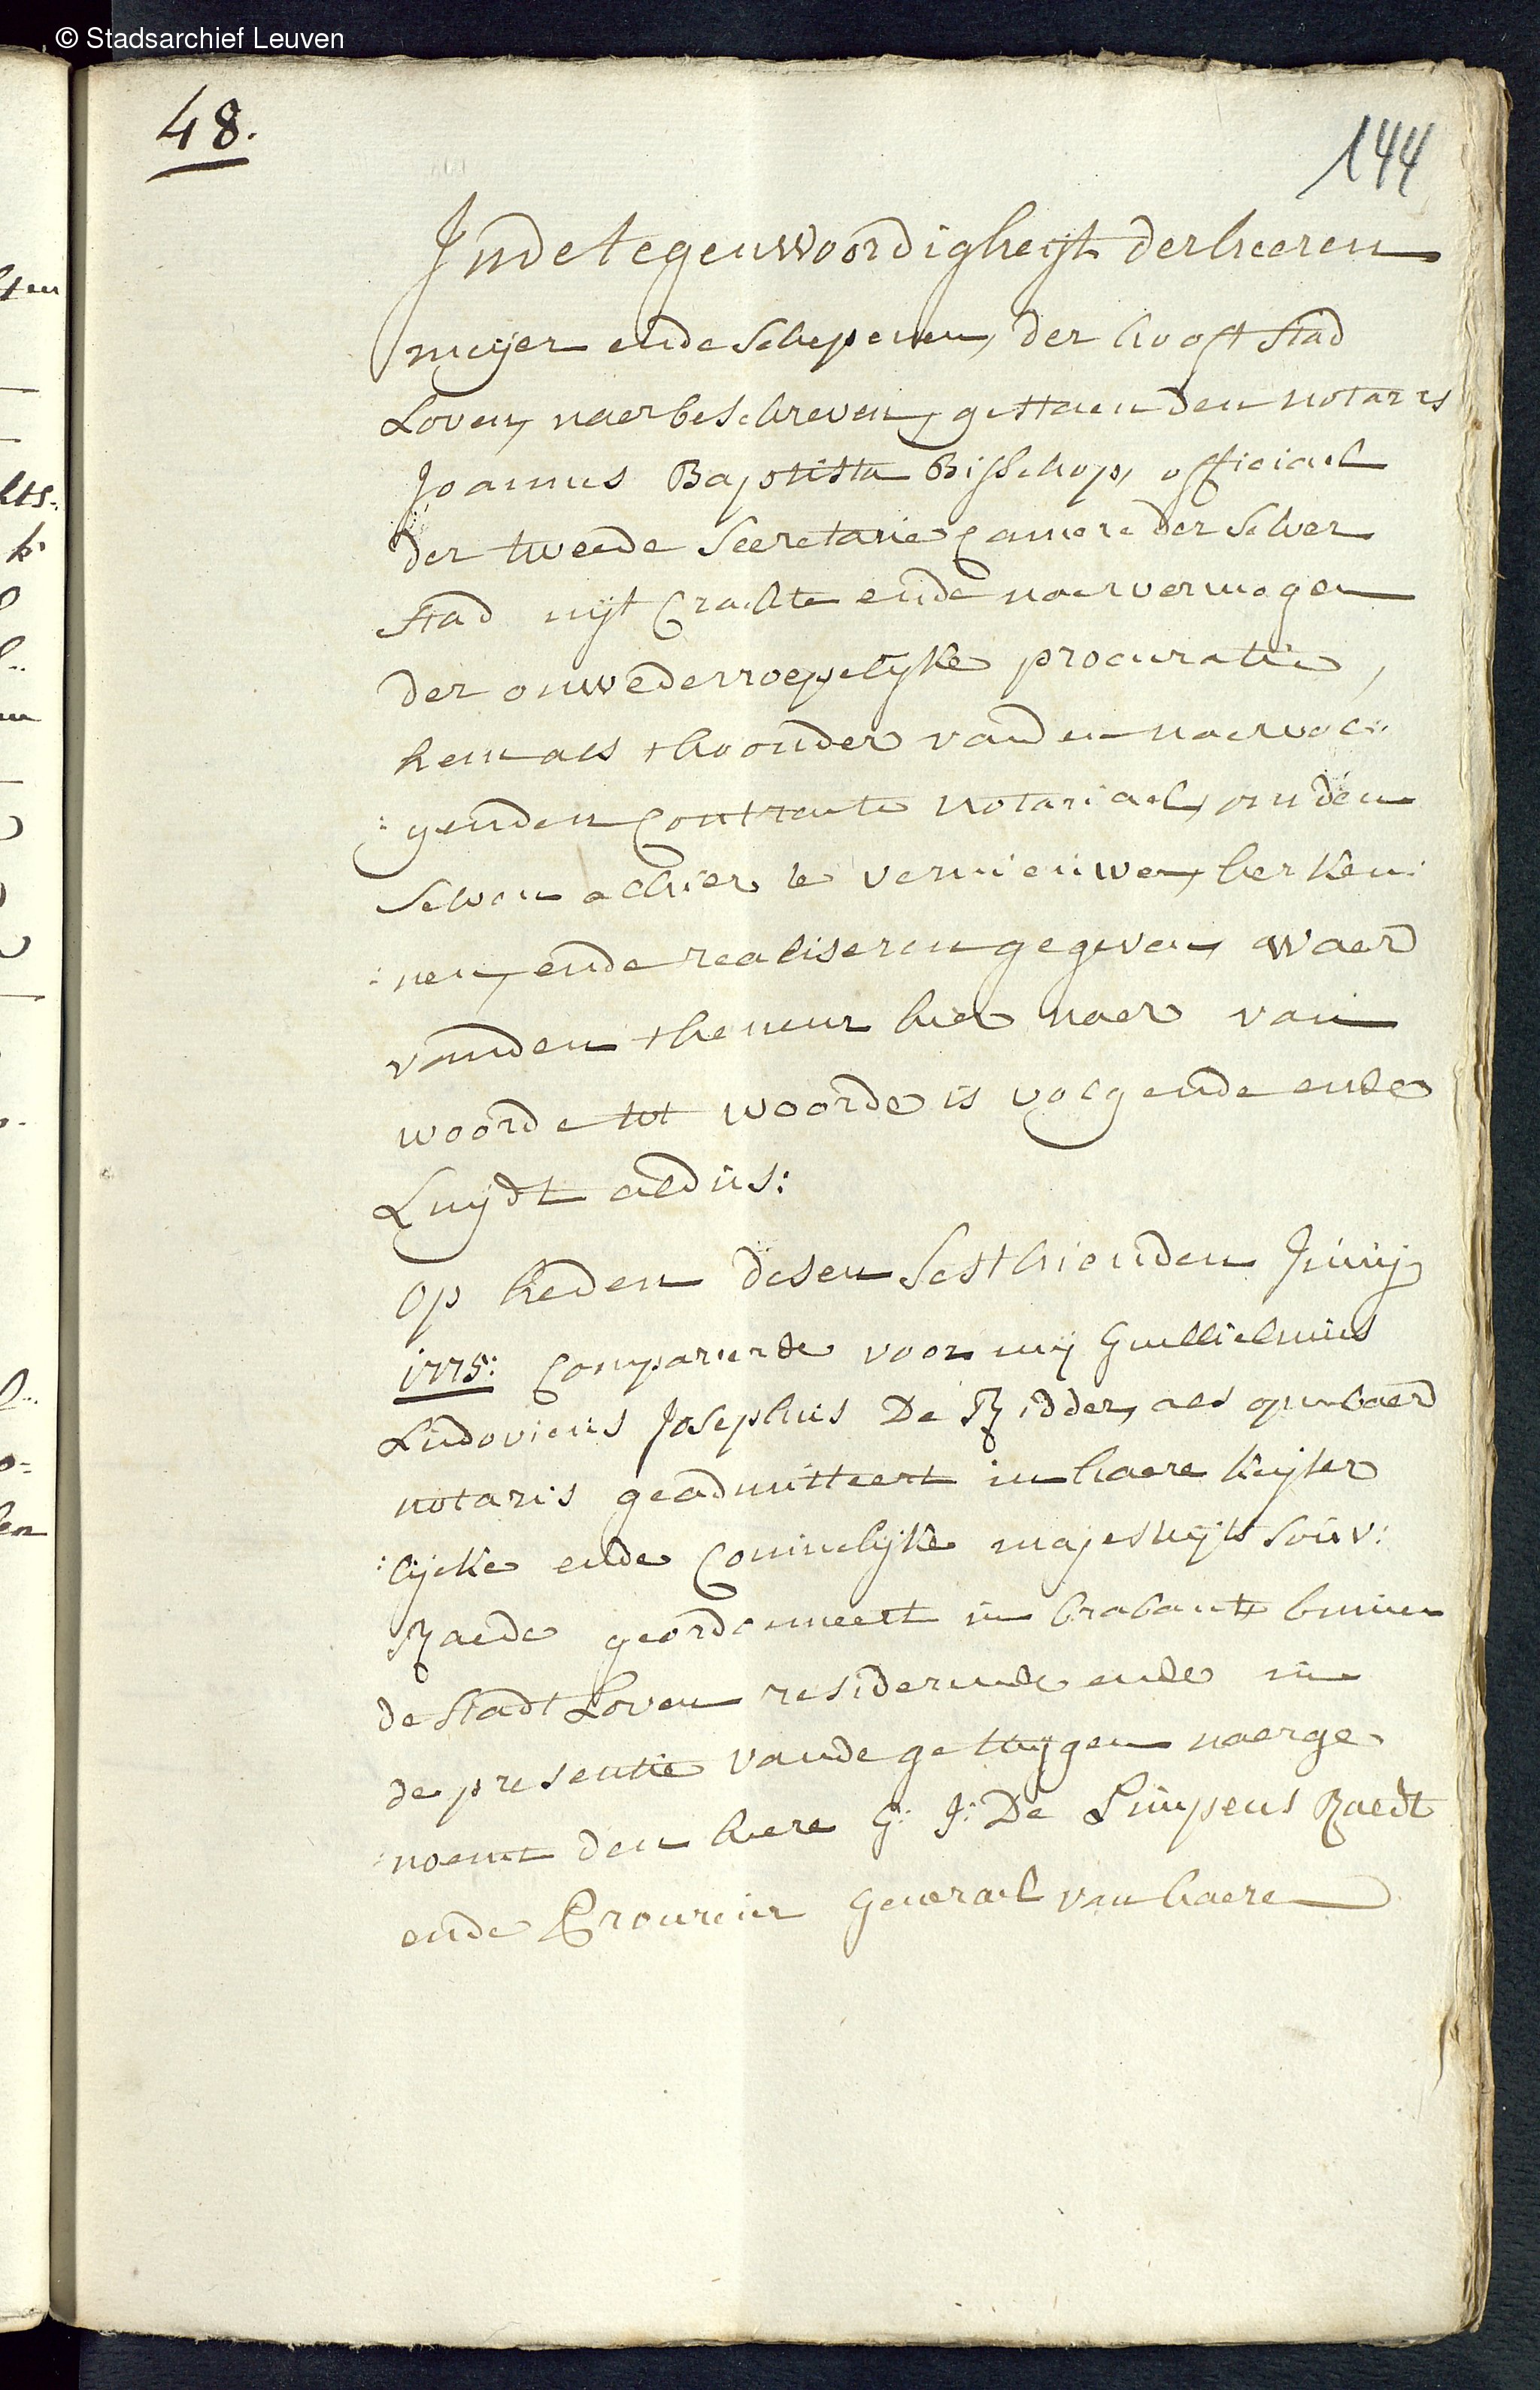 © Stadsarchief Leuven
48.
144
Inde tegenwoordigheijt der heeren
meijer ende schepenen, der hooft stad
Loven, naerbeschreven, gestaen den notaris
Joannes Baptista Bisschop, officiael
der tweede Secretarie Camere der selver
stad uijt Crachte ende naervermogen
der onwederroepelijke procuratie,
hem als thoonder vanden naervol:
:genden Contracte notariael, om den
selven alhier te vernieuwen, herken:
:nen, ende realiseren gegeven, waer
vanden theneur hier naer van
woorde tot woorde is volgende ende
Luijdt aldus:
Op heden desen sesthienden Junij
1775: Compareerde voor mij Guillielmus
Ludovicus Josephus De Ridder, als openbaer
notaris geadmitteert in haere keijser
:lijcke ende Conincklijke majesteijts souv:
Raede geordonneert in brabant binnen
de stadt Loven residerende ende in
de presentie vande getuijgen naerge
:noemt den heere G: J: De Limpens Raedt
ende Procureur Generael van haere